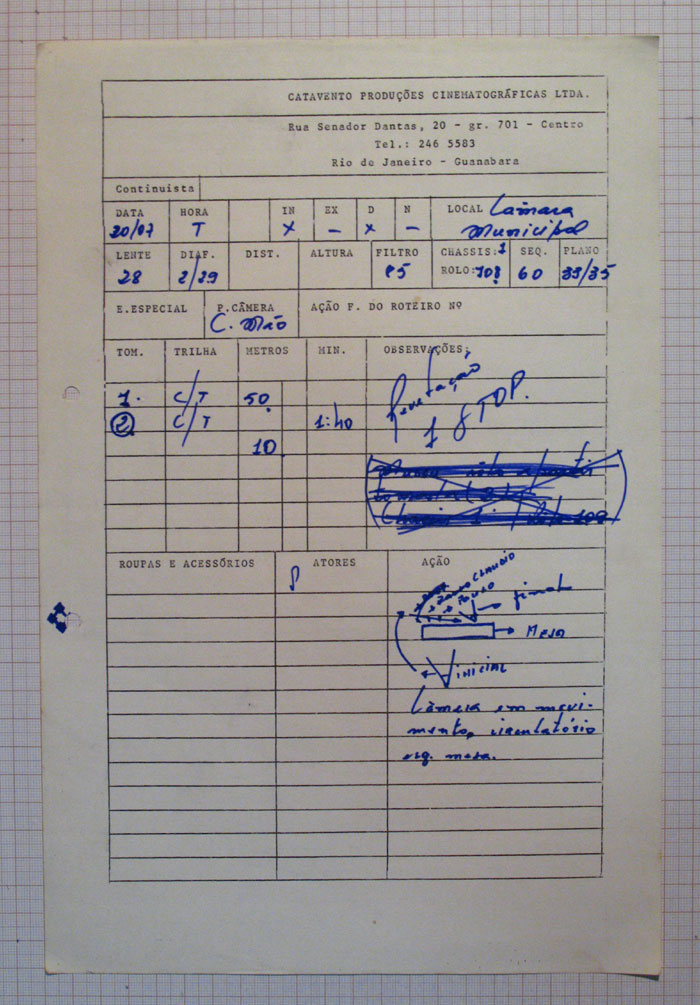 CATAVENTO PRODUÇÕES CINEMATOGRÁFICAS LTDA.
Rua Senador Dantas, 20 - gr. 701 - Centro
Tel.: 246 5583
Rio de Janeiro - Guanabara
Continuista
DATA HORA IN EX D N LOCAL Câmara
20/07 T x - x - Municipal
LENTE DIAF. DIST. ALTURA FILTRO CHASSIS: 1 SEQ. PLANO
28 2/29 85 ROLO: 108 60 33/35
E.ESPECIAL P.CÂMERA AÇÃO F. DO ROTEIRO Nº
C. Mão
TOM. TRILHA METROS MIN. OBSERVAÇÕES:
1. C/T 50. Revelação
2 C/T 1:40 1 STOP.
10
ROUPAS E ACESSÓRIOS ATORES AÇÃO
CLAUDIO
PAULO final
Mesa
INICIAL
Câmera em movi-
mento, circulatório
esq. mesa.